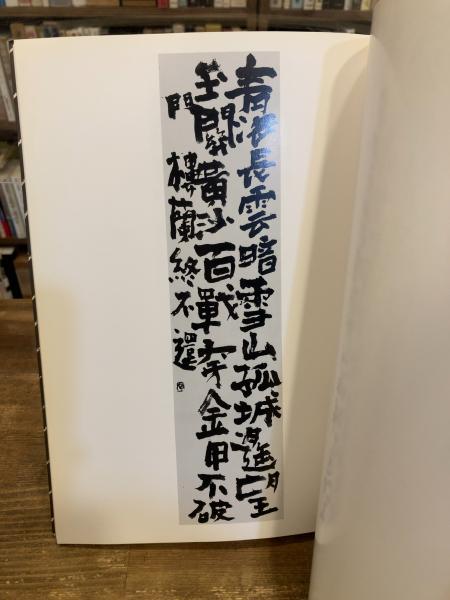 青海長雲暗雪山孤城遙望
玉關黃沙百戰穿金甲不破
門 樓蘭終不還